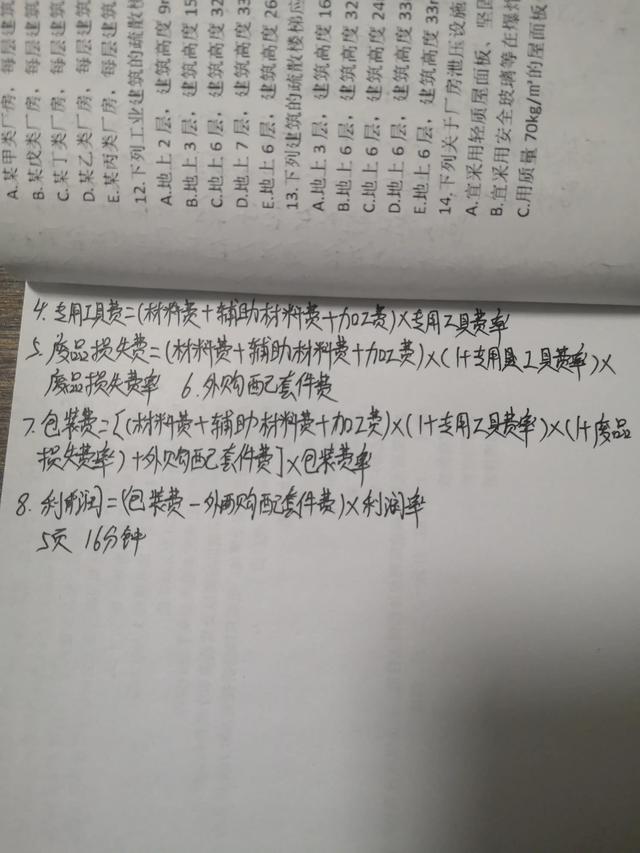 A.某甲类厂房，每层建筑
B.某戊类厂房，每层建
C.某丁类厂房，每层建
D.某乙类厂房，每层建
E.某丙类厂房，每层建筑
12.下列工业建筑的疏散楼
A.地上2层，建筑高度9m
B.地上3层，建筑高度15
C.地上6层，建筑高度32
D.地上7层，建筑高度33
E.地上6层，建筑高度26
13.下列建筑的疏散楼梯应
A.地上3层，建筑高度16
B.地上6层，建筑高度32
C.地上6层，建筑高度24
D.地上6层，建筑高度33
E.地上6层，建筑高度33m
14.下列关于厂房泄压设施
A.宜采用轻质屋面板、
B.宜采用安全玻璃等在爆炸
C.用质量70kg/m²的屋面板
4.专用工具费=(材料费+辅助材料费+加工费)×专用工具费率
5.废品损失费=(材料费+辅助材料费+加工费)×(1+专用工具费率)×
废品损失费率 6.外购配套件费
7.包装费=[(材料费+辅助材料费+加工费)×(1+专用工具费率)×(1+废品
损失费率)+外购配套件费]×包装费率
8.利润=(包装费-外购配套件费)×利润率
5页 16分钟